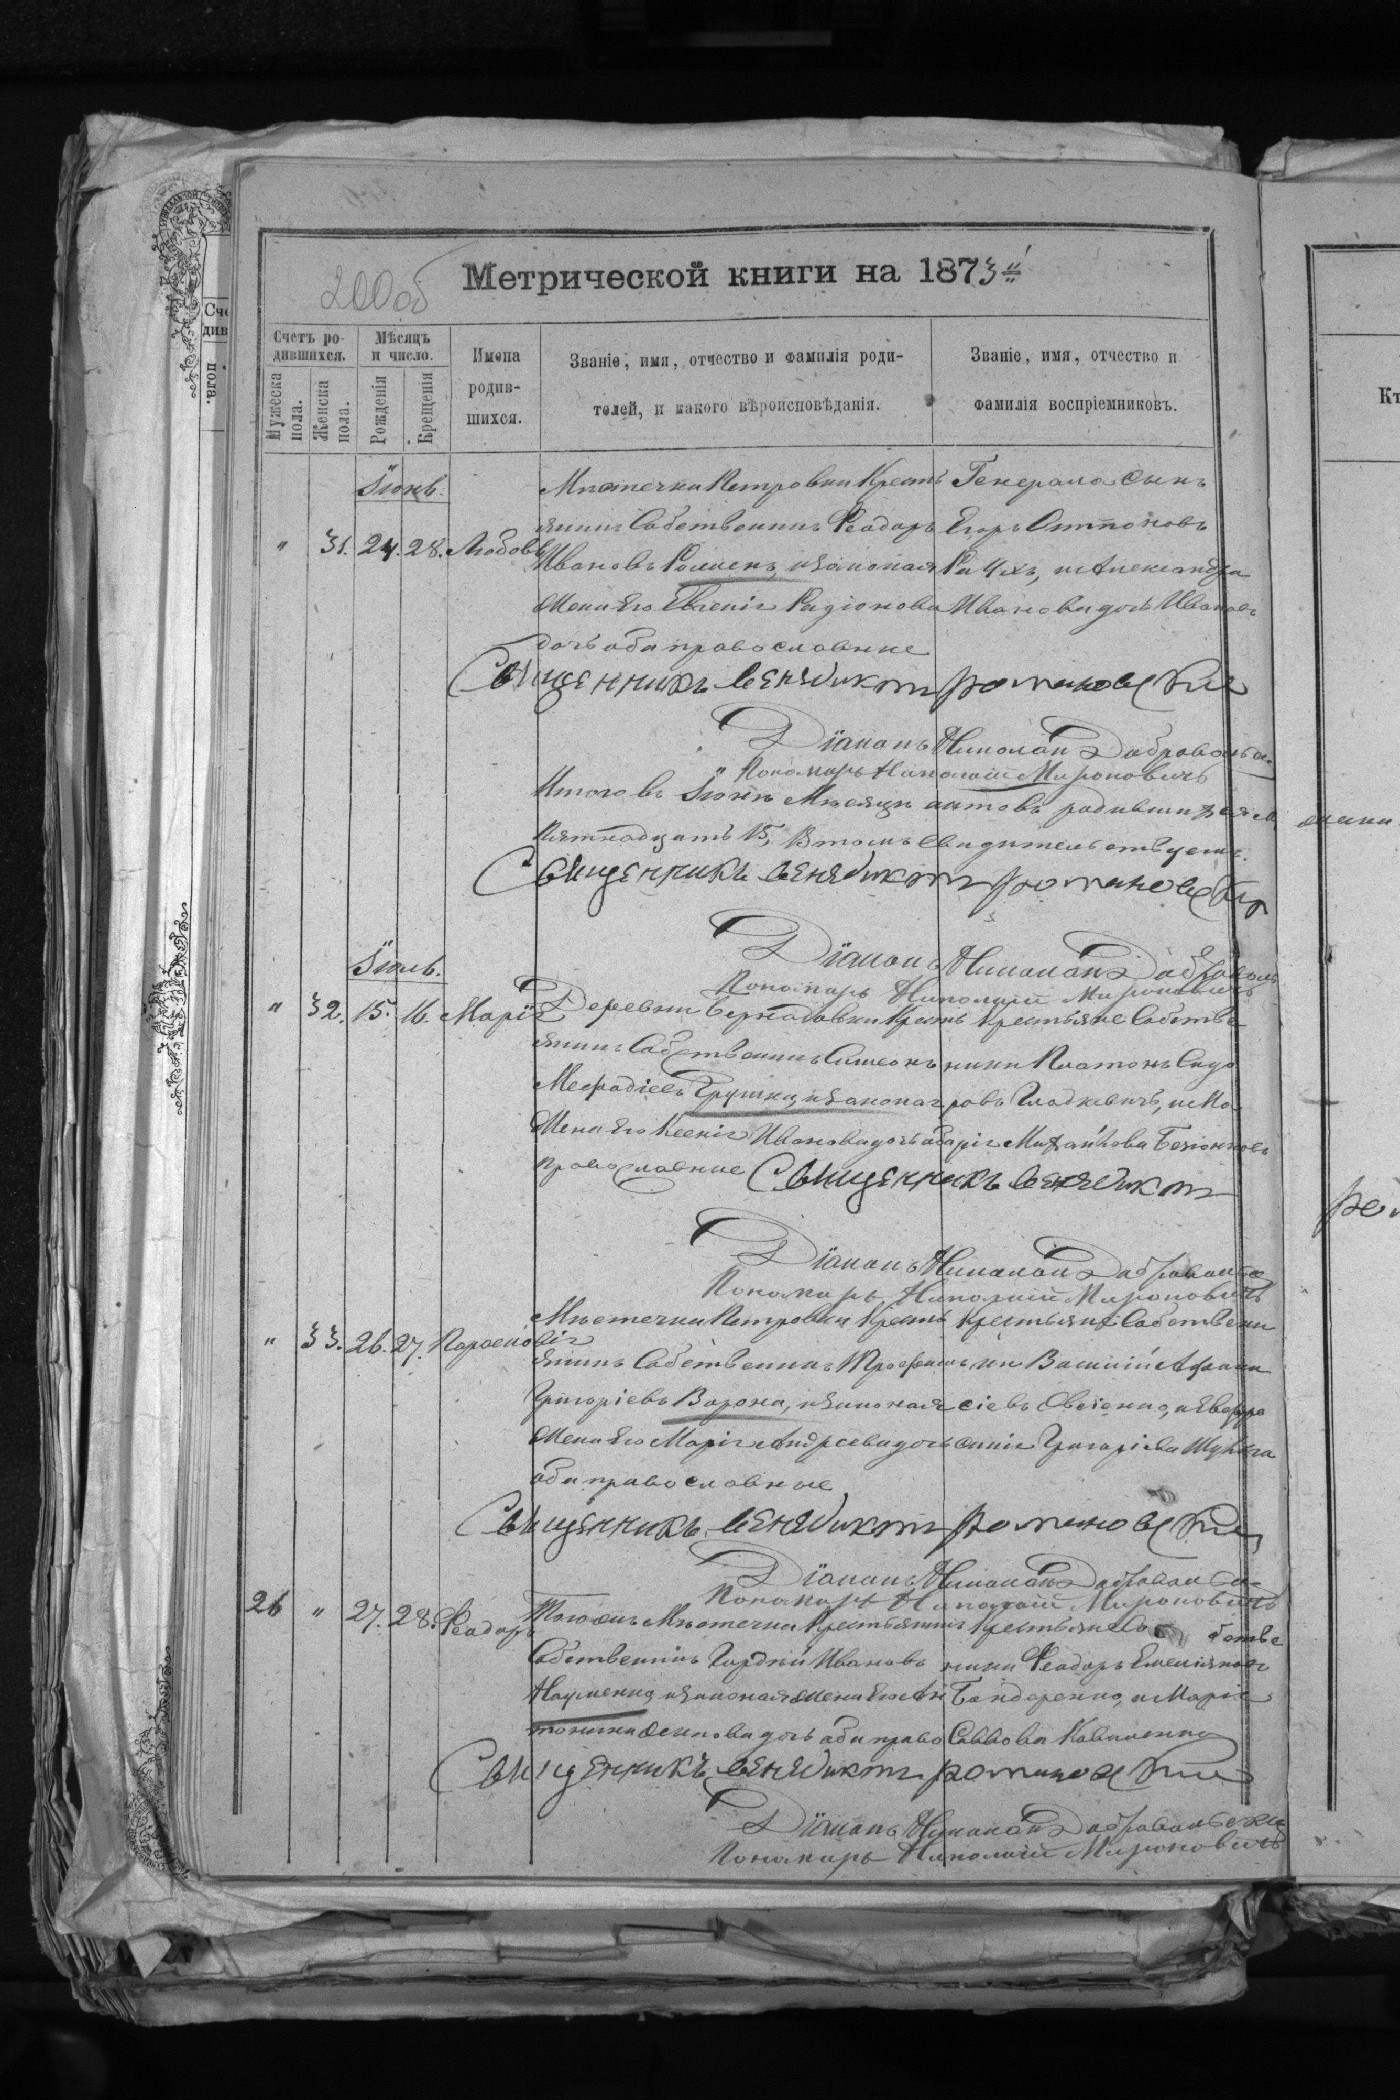 200об
Метрической книги на 1873 й
Счетъ ро-
дившихся.
Мужеска
пола.
Женска
пола.
Мѣсяцъ
и число.
Рожденія
Крещенія
Имена
родив-
шихся.
Званіе, имя, отчество и фамилія роди-
телей, и какого вѣроисповѣданія.
Званіе, имя, отчество и
фамилія воспріемниковъ.
Іюнь.
" 31. 24. 28. Любовь
Мѣстечка Петровки Кресть
янинъ Собственникъ Феодоръ
Ивановъ и законная
Жена Его Евгенія Родіонова
дочь оба православные
Генерала Сынъ
Егоръ Оттоновъ
Рихъ, и Александра
Иванова дочь Иванов
Священникъ Венедиктъ Романовскій
Діаконъ Николай Добровольск
Пономарь Николай Мироновичъ
Итого въ Іюнѣ Мѣсяцѣ актовъ родившихся
пятнадцать 15, въ томъ свидѣтельствуемъ.
Священникъ Венедиктъ Романовскій
Діаконъ Николай Добровол
Пономарь Николай Мироновичъ
Іюль.
" 32. 15. 16. Марія
Деревни Кресть
янинъ Собственникъ Симеонъ
Мефодіевъ Грушка, и законная
Жена Его Ксенія Иванова дочь оба
православные
Крестьяне Собстве
нники Платонъ Сидо
ровъ Гладкевичъ, и Ма
рія Михайлова
Священникъ Венедиктъ
Діаконъ Николай Добровольск
Пономарь Николай Мироновичъ
" 33. 26. 27. Параскевія
Мѣстечка Петровки Кресть
янинъ Собственникъ Трофимъ
Григоріевъ Ворона, и законная
Жена Его Марія Андреева дочь
оба православные
Крестьяне Собственн
ки Василій Афана
сіевъ Овсіенко, и Евфро
синія Григоріева
Священникъ Венедиктъ Романовскій
Діаконъ Николай Добровольск
Пономарь Николай Мироновичъ
26 " 27. 28. Феодоръ
Тогожъ Мѣстечка Крестьянинъ
Собственникъ Гордѣй Ивановъ
Науменко, и законная жена Его Ан
тонина Осипова дочь оба право
Крестьяне Собстве
нники Феодоръ Емельянов
Бондаренко, и Марія
Саввова Коваленко
Священникъ Венедиктъ Романовскій
Діаконъ Николай Добровольскій
Пономарь Николай Мироновичъ